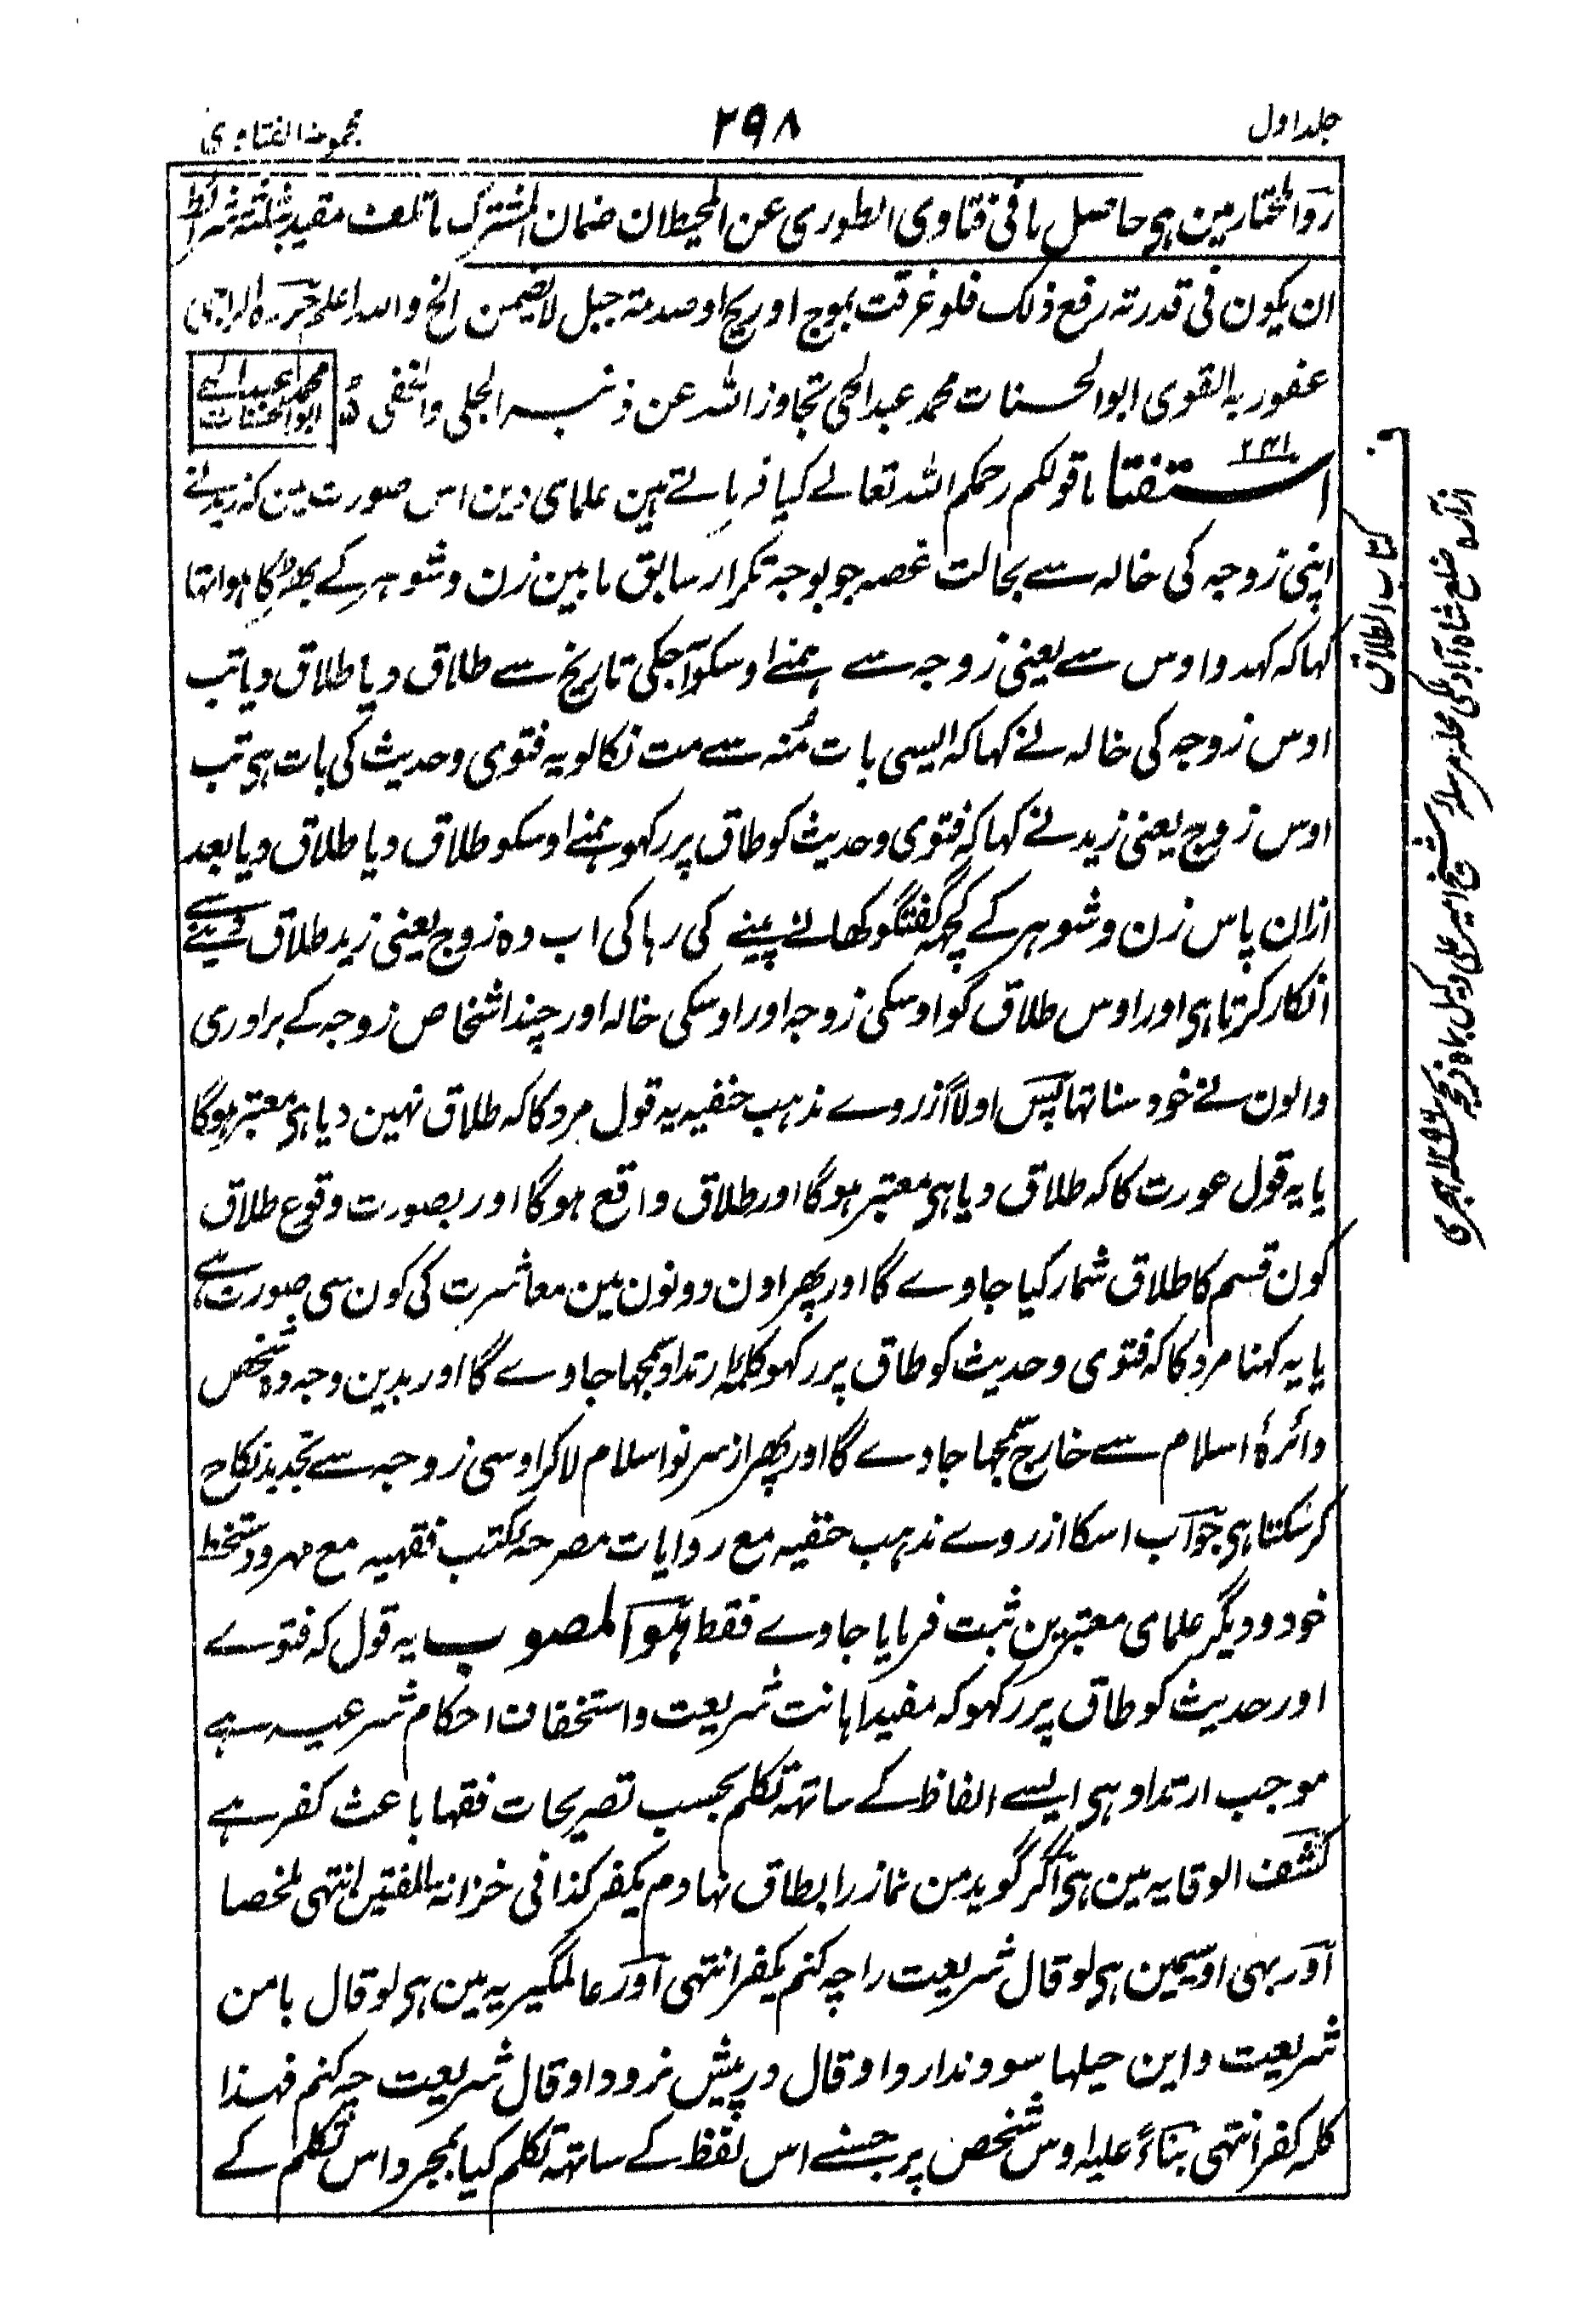 جلد اول
۲۹۸
مجموعۃ الفتاوی
ردالمختار مین ہی حاصل ما فی فتاوی الطوری عن المحیط ان ضمان المشترک ما تلف مقید بثلثۃ شرائط
ان یکون فی قدرتہ رفع ذلک فلو غرقت بموج او ریح او صدمۃ جبل لا یضمن الخ واللہ اعلم حررہ الراجی
عفو ربہ القوی ابوالحسنات محمد عبدالحی تجاوز اللہ عن ذنبہ الجلی والخفی
محمد عبدالحی
ابوالحسنات
استفتا ما قولکم رحمکم اللہ تعالے کیا فرماتے ہین علمای دین اس صورت مین کہ زید نے
اپنی زوجہ کی خالہ سے بحالت غصہ جو بوجہ تکرار سابق مابین زن و شوہر کے بھڑکا ہوا تھا
کہا کہ کہدو اوس سے یعنی زوجہ سے ہمنے اوسکو آجکی تاریخ سے طلاق دیا طلاق دیا تب
اوس زوجہ کی خالہ نے کہا کہ ایسی بات مُنہ سے مت نکالو یہ فتوی و حدیث کی بات ہی تب
اوس زوج یعنی زید نے کہا کہ فتوی و حدیث کو طاق پر رکھو ہمنے اوسکو طلاق دیا طلاق دیا بعد
ازان پاس زن و شوہر کے کچھ گفتگو کھانے پینے کی رہا کی اب وہ زوج یعنی زید طلاق دینے سے
انکار کرتا ہی اور اوس طلاق کو اوسکی زوجہ اور اوسکی خالہ اور چند اشخاص زوجہ کے برادری
والون نے خود سنا تھا پس اولاً ازروے مذہب حنفیہ یہ قول مرد کا کہ طلاق نہین دیا ہی معتبر ہوگا
یا یہ قول عورت کا کہ طلاق دیا ہی معتبر ہوگا اور طلاق واقع ہوگا اور بصورت وقوع طلاق
کون قسم کا طلاق شمار کیا جاوے گا اور پھر اون دونون مین معاشرت کی کون سی صورت ہے
یا یہ کہنا مرد کا کہ فتوی و حدیث کو طاق پر رکھو کلمۂ ارتداد سمجھا جاوے گا اور بدین وجہ وہ شخص
دائرۂ اسلام سے خارج سمجھا جاوے گا اور پھر از سر نو اسلام لاکر اوسی زوجہ سے تجدید نکاح
کرسکتا ہی جواب اسکا ازروے مذہب حنفیہ مع روایات مصرحۂ کتب فقہیہ مع مہر و دستخط
خود و دیگر علمای معتبرین ثبت فرمایا جاوے فقط ہو المصوب یہ قول کہ فتوے
اور حدیث کو طاق پر رکھو کہ مفید اہانت شریعت و استخفاف احکام شرعیہ ہے
موجب ارتداد ہی ایسے الفاظ کے ساتھ تکلم بحسب تصریحات فقہا باعث کفر ہے
کشف الوقایہ مین ہی اگر گوید من نماز را بطاق نہادم یکفر کذا فی خزانۃ المفتین انتہی ملخصا
اور بہی اوسیمین ہی لو قال شریعت را چہ کنم یکفر انتہی اور عالمگیریہ مین ہی لو قال با من
شریعت و این حیلہا سود ندارد او قال در پیش نرود او قال شریعت چہ کنم فہذا
کلہ کفر انتہی بناءً علیہ اوس شخص پر جسنے اس لفظ کے ساتھ تکلم کیا بمجرد اس تکلم کے
کتاب الطلاق
از آرہ ضلع شاہ آباد محلہ مرسلہ شیخ امیر علی وکیل ہجری